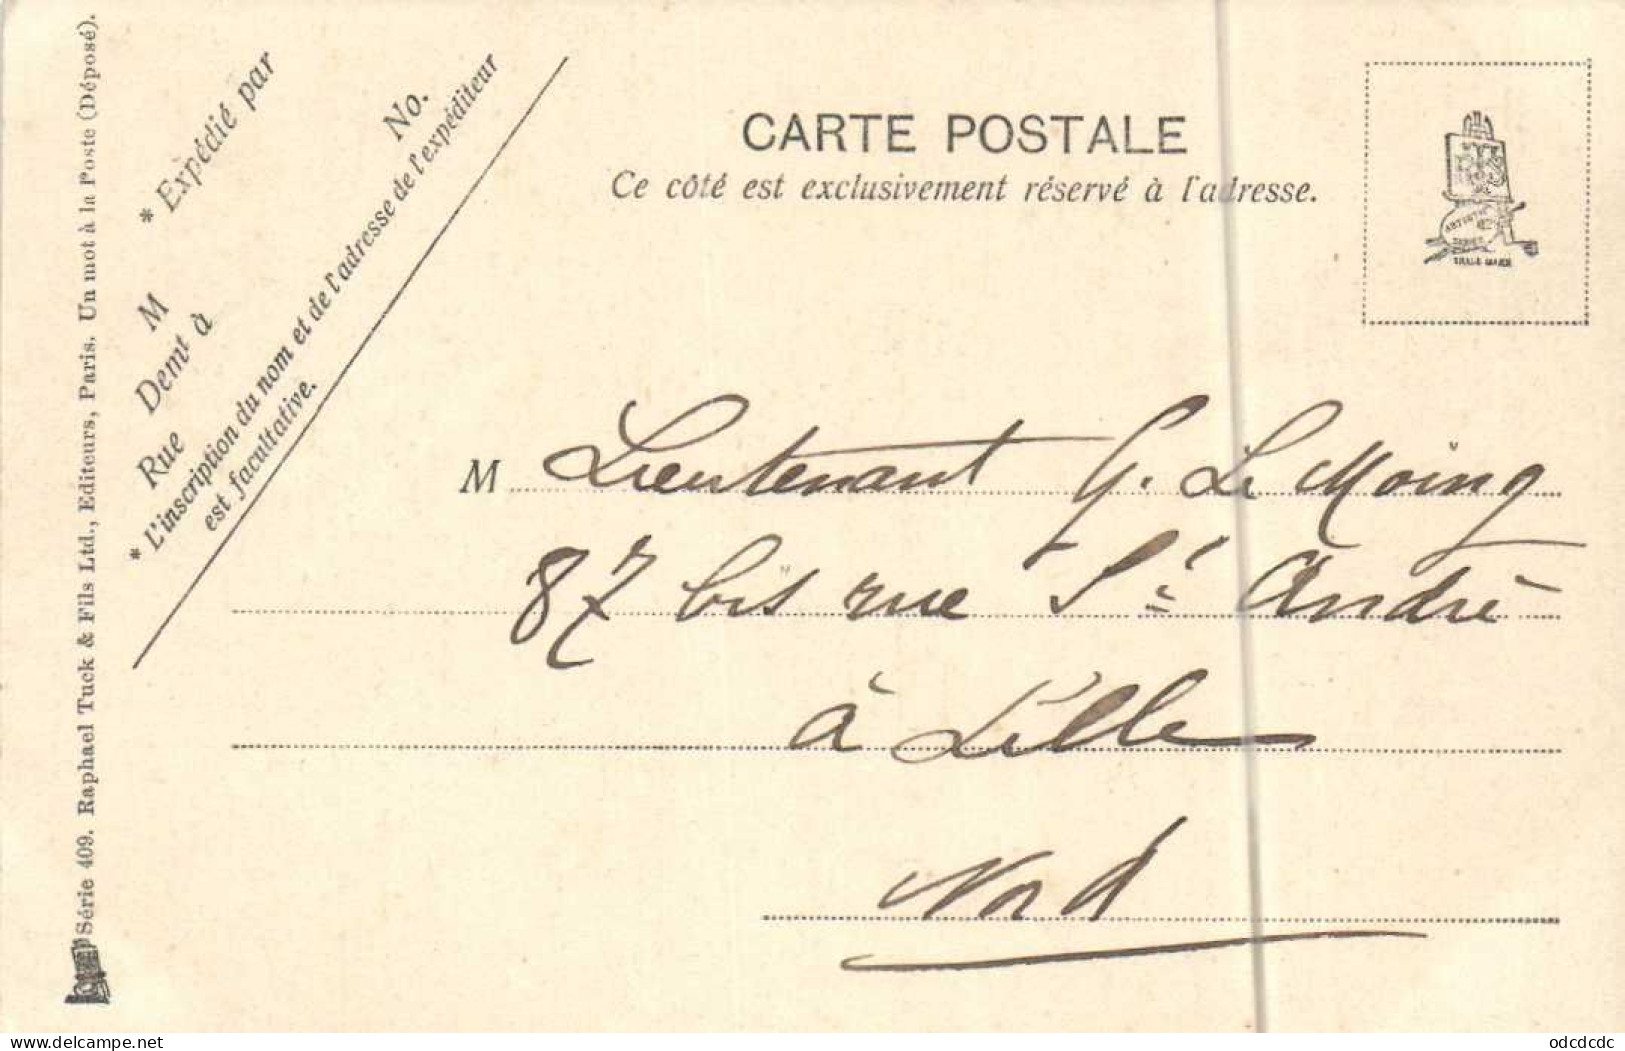 Série 409. Raphael Tuck & Fils Ltd., Editeurs, Paris. Un mot à la Poste (Déposé).
* Expédié par
No.
M
Demt à
Rue
* L'inscription du nom et de l'adresse de l'expéditeur
est facultative.
CARTE POSTALE
Ce côté est exclusivement réservé à l'adresse.
ARTISTIC
SERIES
TRADE MARK
M Lieutenant G. Le Moing
87 bis rue St André
à Lille
Nord
delcampe.net
odcdcdc